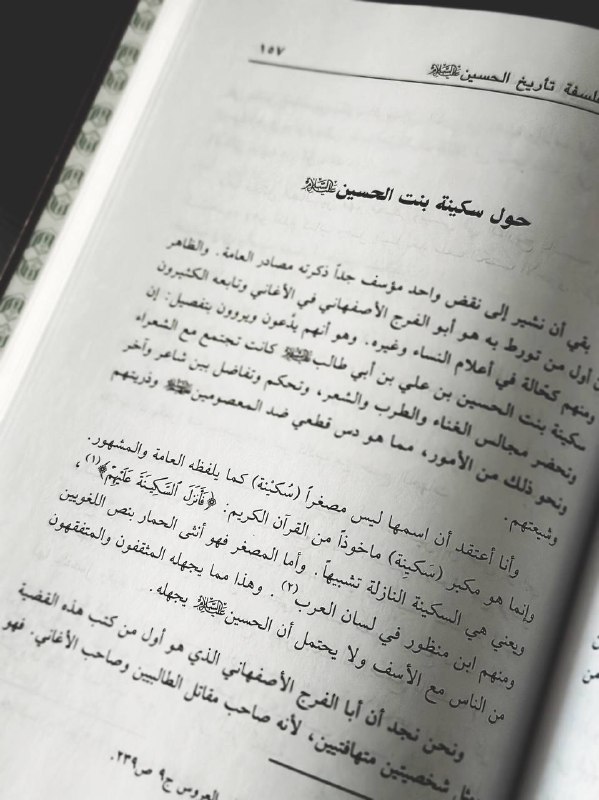 ١٥٧
فلسفة تأريخ الحسين عليه السلام
حول سكينة بنت الحسين عليه السلام
بقي أن نشير إلى نقض واحد مؤسف جداً ذكرته مصادر العامة. والظاهر
أن أول من تورط به هو أبو الفرج الأصفهاني في الأغاني وتابعه الكثيرون
ومنهم كحّالة في أعلام النساء وغيره. وهو أنهم يدّعون ويروون بتفصيل: إن
سكينة بنت الحسين بن علي بن أبي طالب كانت تجتمع مع الشعراء
وتحضر مجالس الغناء والطرب والشعر، وتحكم وتفاضل بين شاعر وآخر
ونحو ذلك من الأمور، مما هو دس قطعي ضد المعصومين وذريتهم
وشيعتهم.
وأنا أعتقد أن اسمها ليس مصغراً (سُكَيْنة) كما يلفظه العامة والمشهور.
وإنما هو مكبر (سَكِينِة) ماخوذاً من القرآن الكريم: ﴿فَأَنزَلَ ٱلسَّكِينَةَ عَلَيْهِمْ﴾(١)،
ويعني هي السكينة النازلة تشبيهاً. وأما المصغر فهو أنثى الحمار بنص اللغويين
ومنهم ابن منظور في لسان العرب(٢). وهذا مما يجهله المثقفون والمتفقهون
من الناس مع الأسف ولا يحتمل أن الحسين عليه السلام يجهله.
ونحن نجد أن أبا الفرج الأصفهاني الذي هو أول من كتب هذه القضية
يمثل شخصيتين متهافتين، لأنه صاحب مقاتل الطالبيين وصاحب الأغاني. فهو
العروس ج٩ ص٢٣٩.